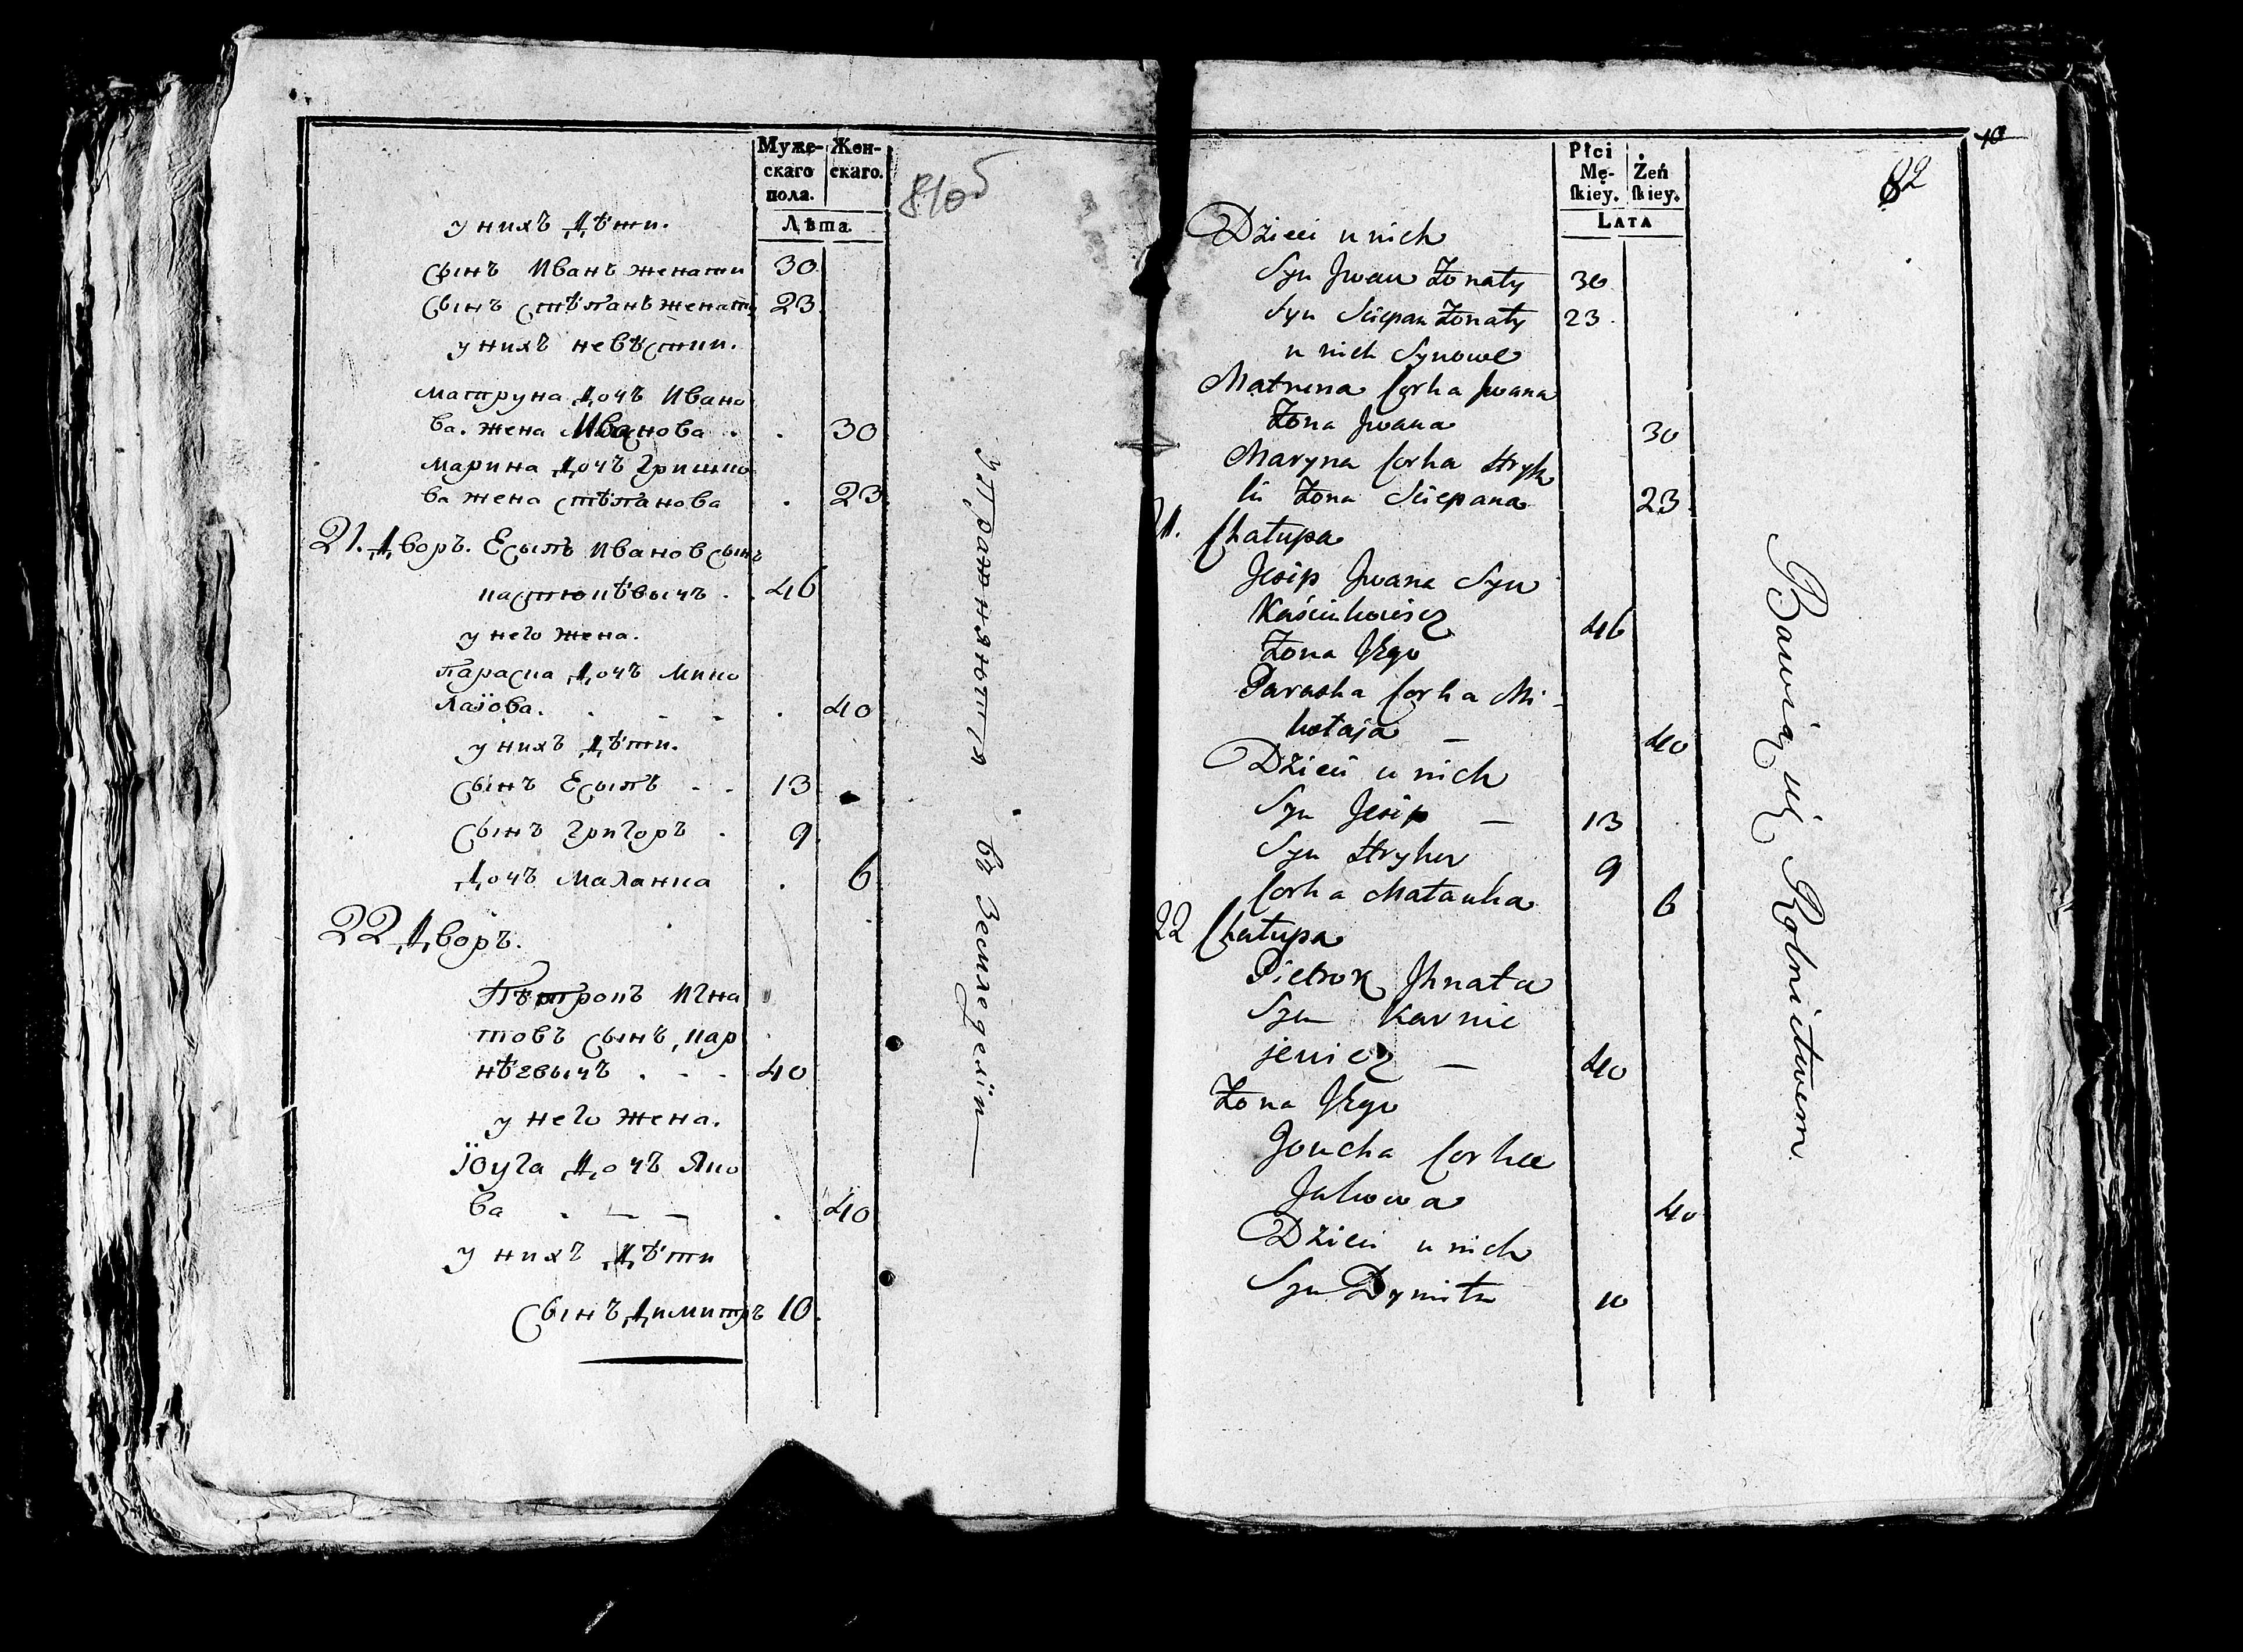 Муже-
скаго
пола.
Жен-
скаго.
Лѣта.
81об
у нихъ Дѣти.
Сынъ Иванъ женати 30
Сынъ Стѣпанъ женати 23
у нихъ невѣстки.
Матруна Дочъ Ивано
ва. жена Иванова . . 30
Марина Дочъ Гришко
ва жена Стѣпанова . 23
21. Дворъ. Есыпъ Иванов Сынъ
Кастюкѣвычъ . . 46
у него жена.
Параска Дочъ Мико
лаіова. . - - . 40
у нихъ Дѣти.
Сынъ Есыпъ - - 13
Сынъ Григоръ . 9
Дочъ Маланка . 6
22 Дворъ.
Пѣтрокъ Игна
товъ Сынъ, Кар
нѣевычъ . - - 40
у него жена.
Іоуга Дочъ Яко
ва . - - . 40
у нихъ Дѣти
Сынъ Димитръ 10.
упражняются въ Земледеліи
Płci
Mę-
ſkiey.
Żeń
ſkiey.
Lata
10
82
Dzieci u nich
Syn Jwan Żonaty 30
Syn Sciepan Żonaty 23
u nich Synowe
Matruna Corka Jwana
Żona Jwana 30
Maryna Corka Hrysk
Żona Sciepana 23
21. Chałupa
Jesip Jwana Syn
Kaściukowicz 46
Żona Jego
Paraska Corka Mi-
kołaja — 40
Dzieci u nich
Syn Jesip — 13
Syn Hryhor 9
Corka Małanka 6
22 Chałupa
Pietrok Jhnata
Syn Karnie
jewicz — 40
Żona Jego
Joucha Corka
Jakowa 40
Dzieci u nich
Syn Dymitr 10
Bawią się Rolnictwem